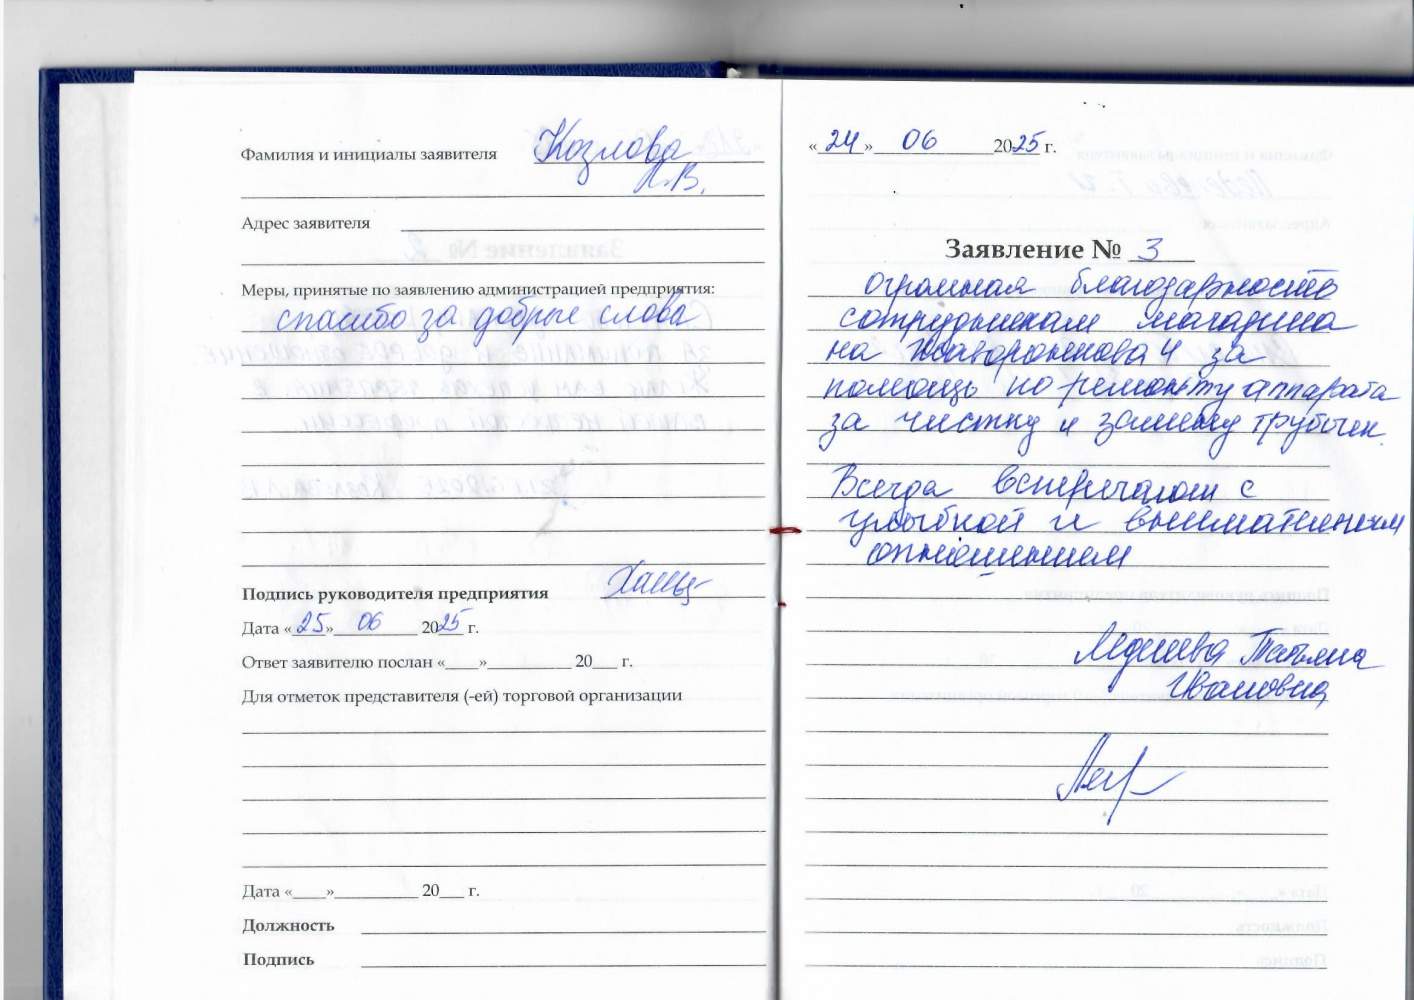 Фамилия и инициалы заявителя Козлова
Л.В.
Адрес заявителя
Меры, принятые по заявлению администрацией предприятия:
спасибо за добрые слова
Подпись руководителя предприятия
Дата «25» 06 2025 г.
Ответ заявителю послан «____»__________ 20___ г.
Для отметок представителя (-ей) торговой организации
Дата «____»__________ 20___ г.
Должность
Подпись
«24» 06 2025 г.
Заявление № 3
огромная благодарность
сотрудникам магазина
на Жаворонкова 4 за
помощь по ремонту аппарата
за чистку и замену трубочек.
Всегда встречают с
улыбкой и внимательным
отношением
Татьяна
Ивановна